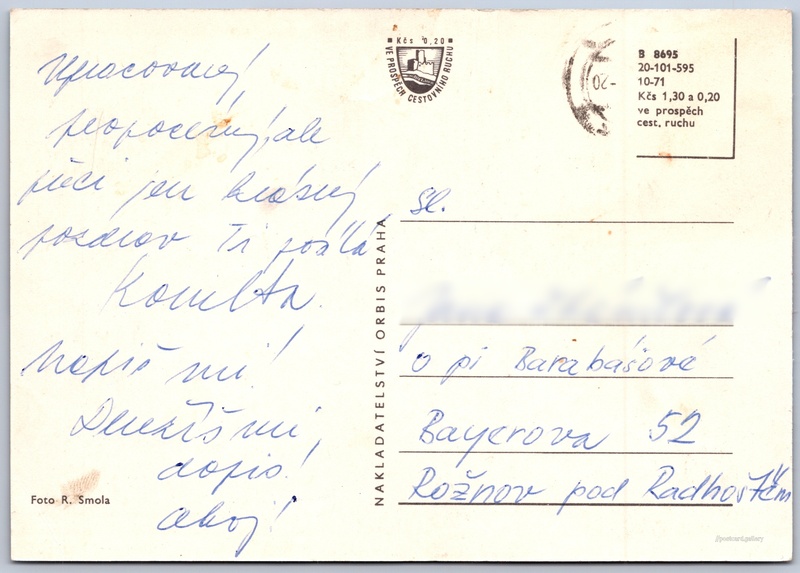 Upracovaný,
propocený, ale
přeci jen krásný
pozdrav Ti posílá
Napiš mi!
dopis!
Ahoj!
Foto R. Smola
Kčs 0,20
VE PROSPĚCH CESTOVNÍHO RUCHU
NAKLADATELSTVÍ ORBIS PRAHA
B 8695
20-101-595
10-71
Kčs 1,30 a 0,20
ve prospěch
cest. ruchu
Sl.
u pí Barabášové
Bayerova 52
Rožnov pod Radhoštěm